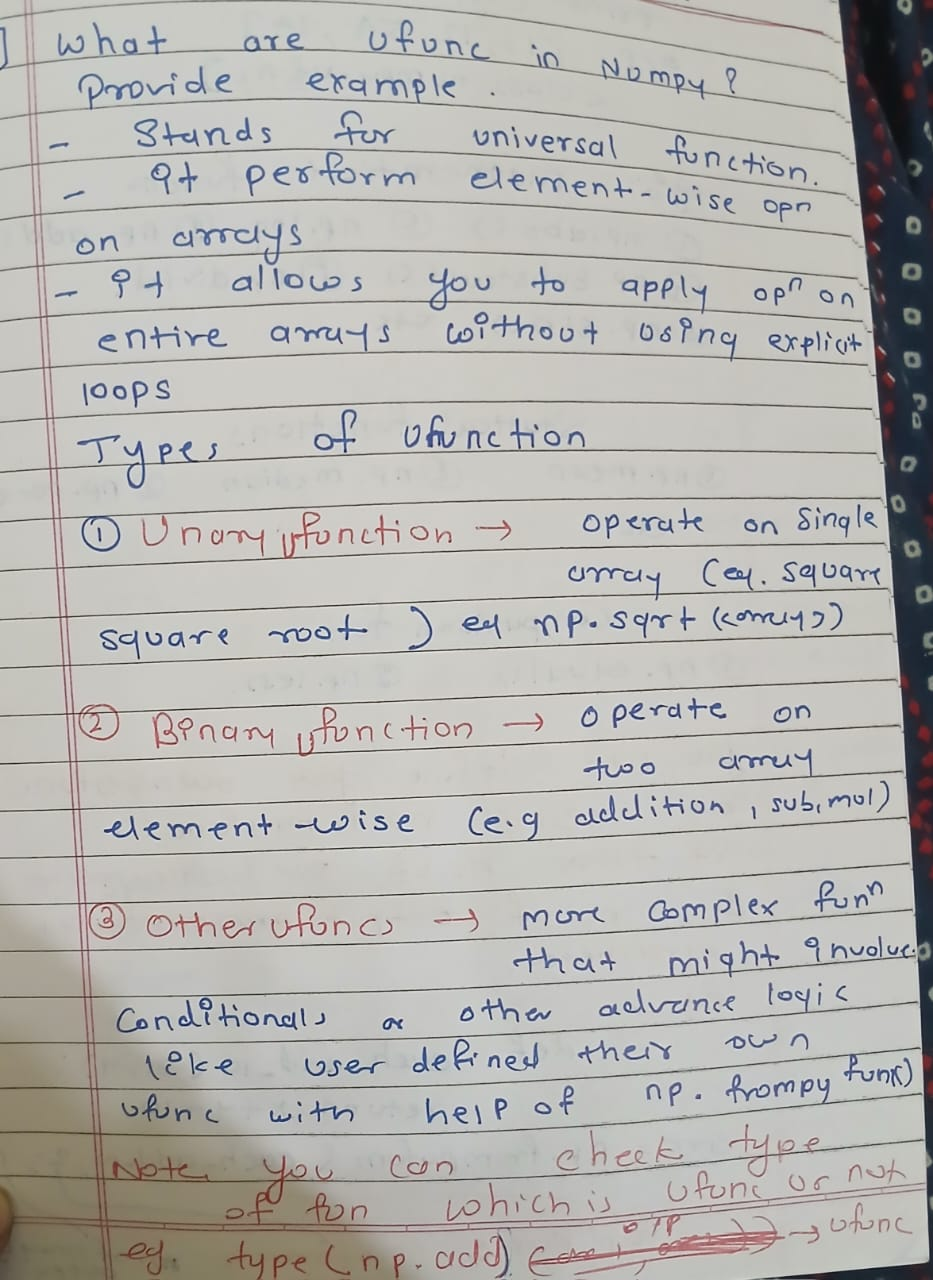 ] What are ufunc in Numpy?
Provide example.
- Stands for universal function.
- It perform element-wise opn
on arrays
- It allows you to apply opⁿ on
entire arrays without using explicit
loops
Types of ufunction
① Unary ufunction → operate on single
array (eg. square
square root ) eg np.sqrt (<array>)
② Binary ufunction → operate on
two array
element-wise (e.g addition, sub, mul)
③ Other ufuncs → more complex funⁿ
that might involve
Conditionals or other advance logic
like user defined their own
ufunc with help of np.frompyfunc)
Note you can check type
of fun which is ufunc or not
eg. type (np.add) O/P → ufunc